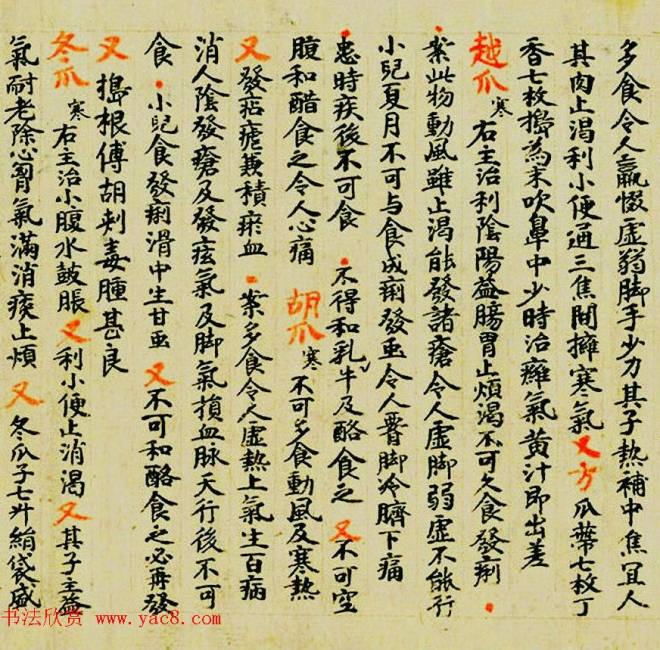 多食令人羸惙虛弱脚手少力其子熱補中焦宜人
其肉止渴利小便通三焦間擁塞氣又方瓜蔕七枚丁
香七枚搗為末吹鼻中少時治癰氣黃汁即出差
越瓜寒右主治利陰陽益腸胃止煩渴不可久食發痢
案此物動風雖止渴能發諸瘡令人虛脚弱虛不能行
小兒夏月不可与食成痢發虫令人脚冷臍下痛
患時疾後不可食 不得和乳牛及酪食之 又不可空
腹和醋食之令人心痛 胡瓜寒 不可多食動風及寒熱
又發痁瘧兼積瘀血 案多食令人虛熱上氣生百病
消人陰發瘡及發疰氣及脚氣損血脉天行後不可
食 小兒食發痢滑中生甘虫 又不可和酪食之必再發
又搗根傅胡刺毒腫甚良
冬瓜寒右主治小腹水鼓脹又利小便止消渴又其子主益
氣耐老除心胷氣滿消痰止煩 又冬瓜子七升絹袋盛
书法欣赏 www.yac8.com